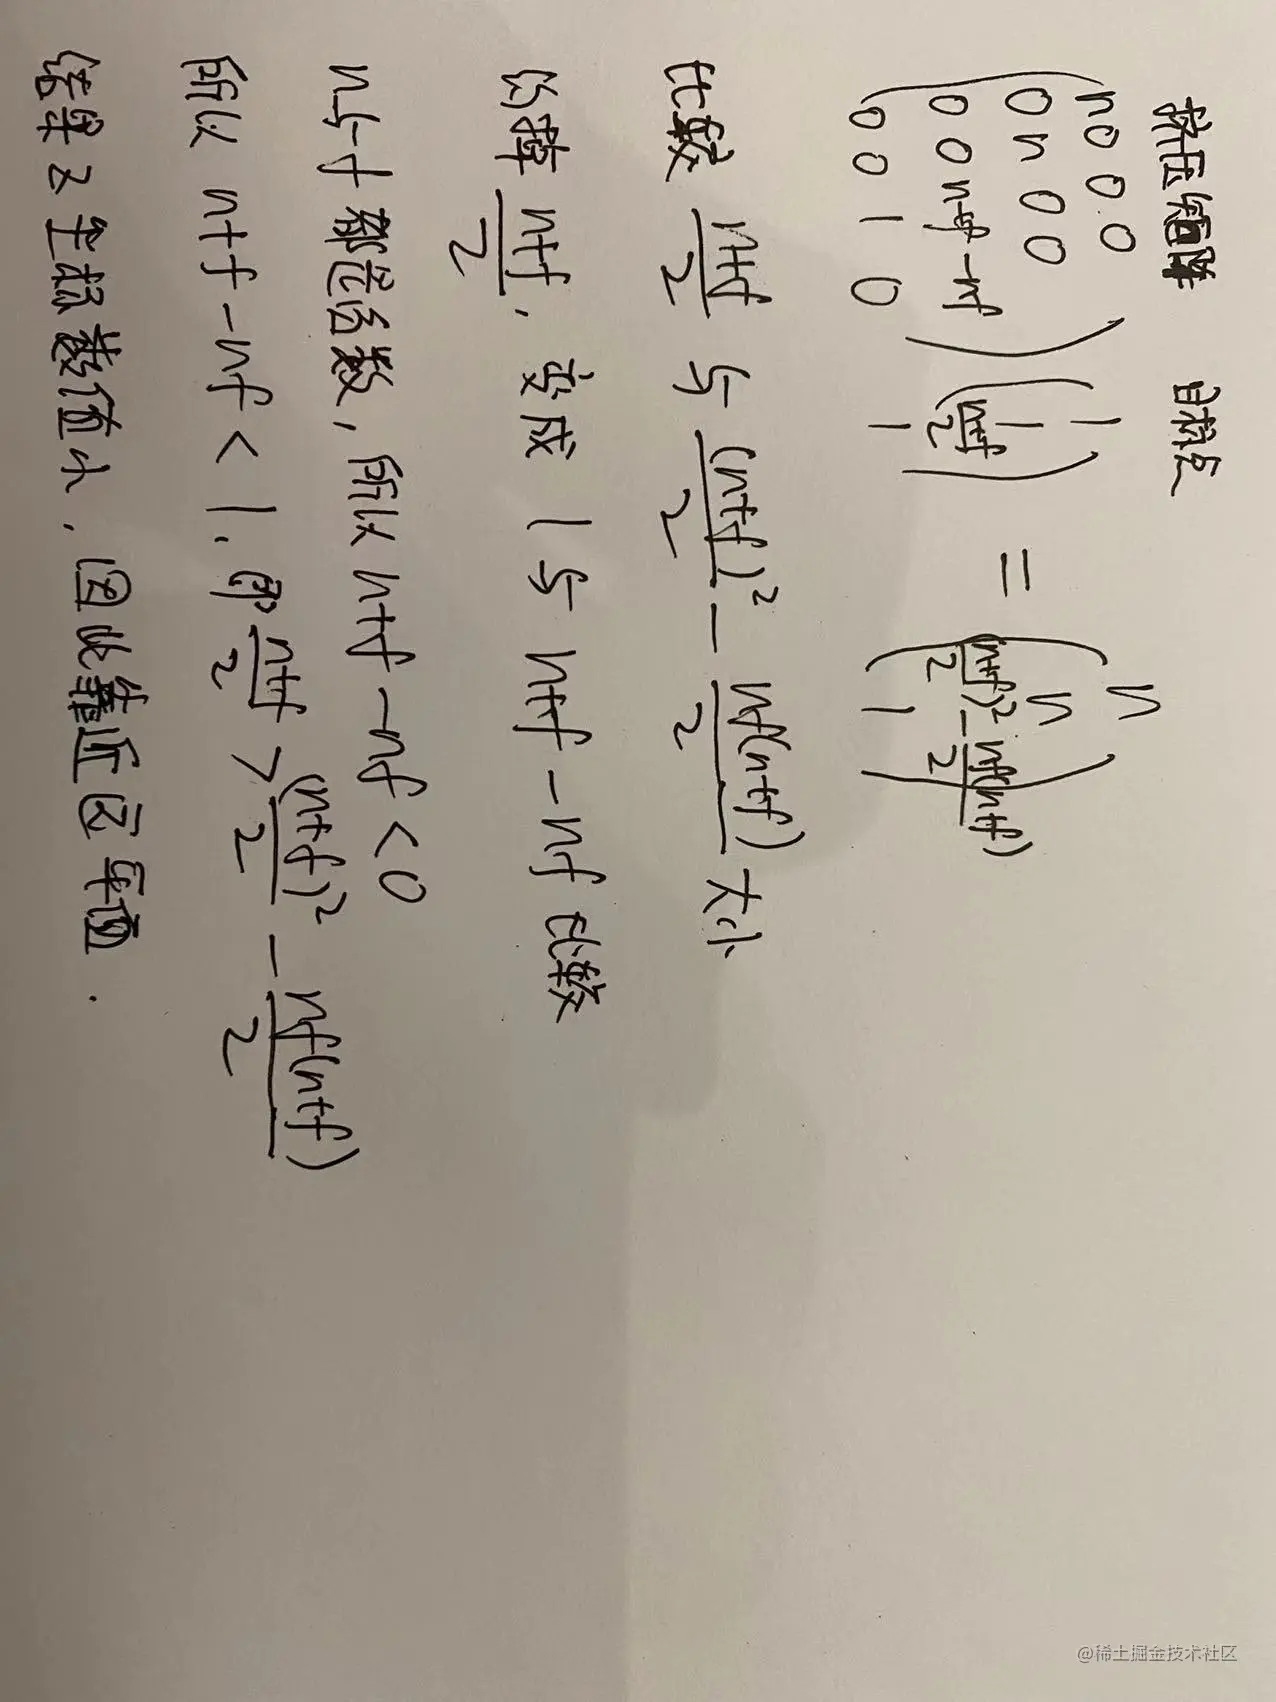 挤压矩阵 目标点
n 0 0 0
0 n 0 0
0 0 n+f -nf
0 0 1 0
1
1
n+f/2
1
=
n
n
(n+f)²/2 - nf(n+f)/2
1
比较 n+f/2 与 (n+f)²/2 - nf(n+f)/2 大小
约掉 n+f/2, 变成 1 与 n+f - nf 比较
n与f都是负数, 所以 n+f - nf < 0
所以 n+f - nf < 1. 即 n+f/2 > (n+f)²/2 - nf(n+f)/2
结果Z坐标数值小, 因此靠近远平面.
@稀土掘金技术社区